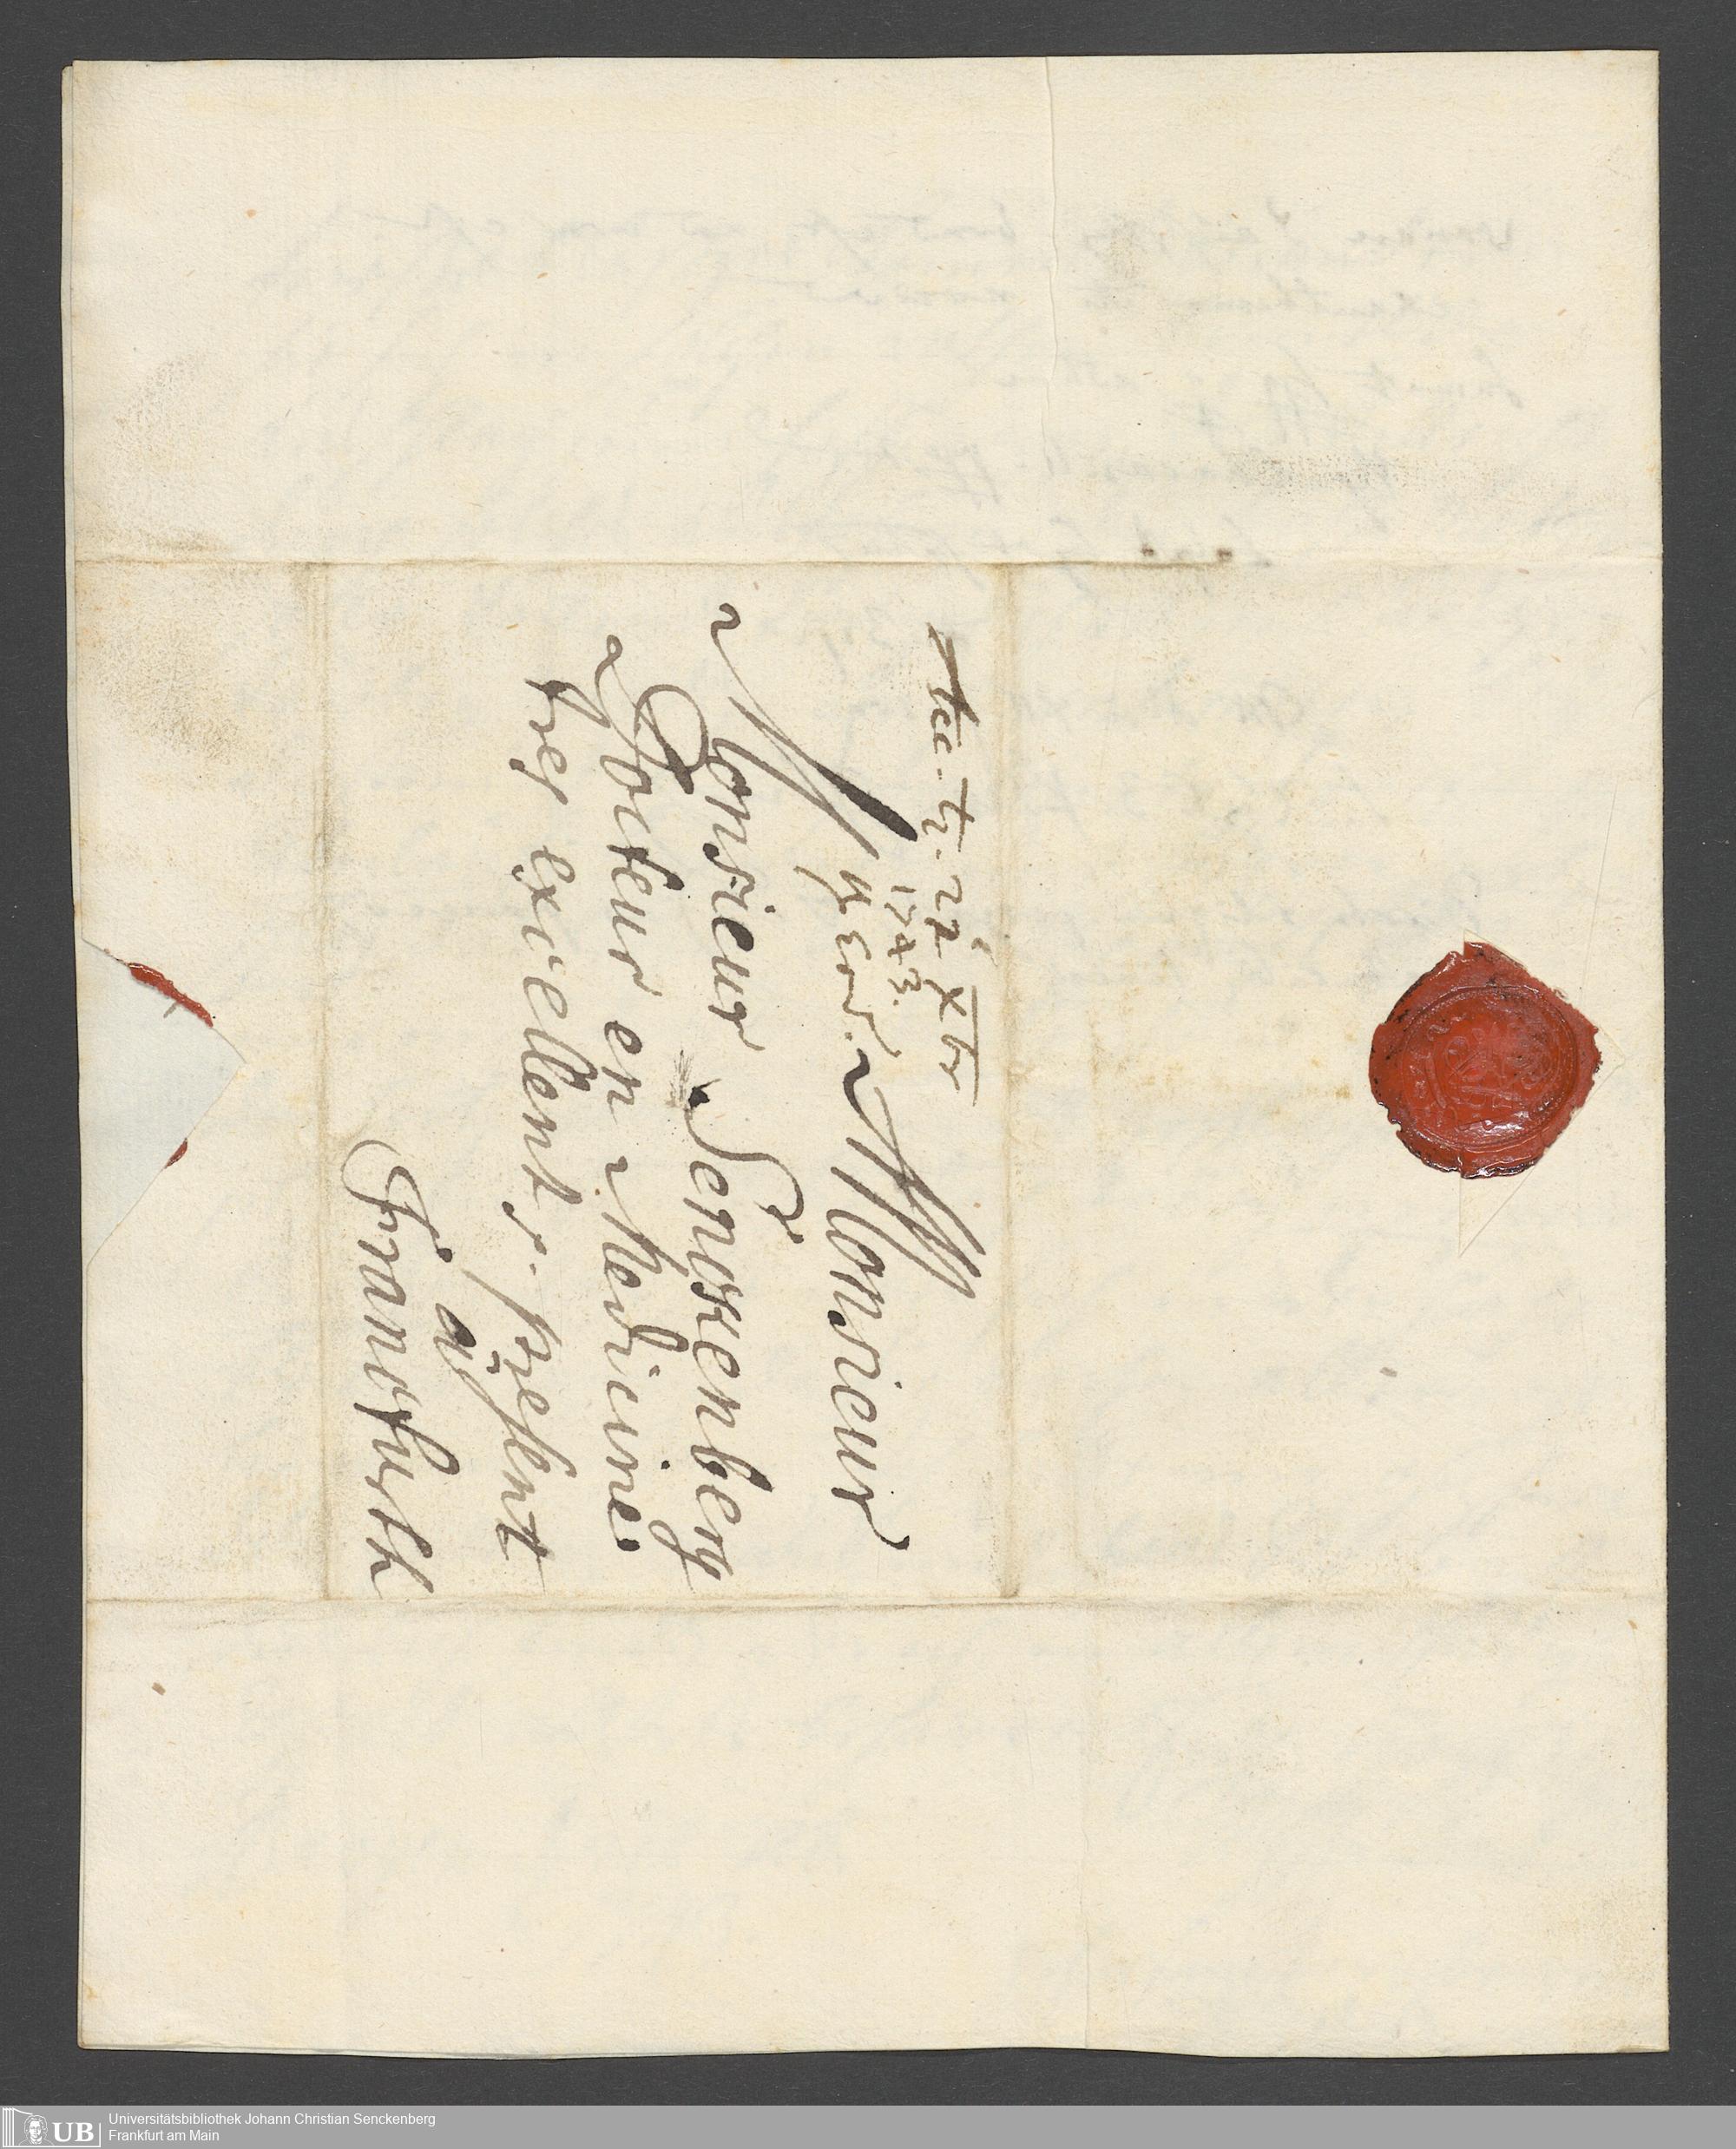 Acc. 27 Xbr
1743.
Monsieur
Monsieur Senckenberg
Docteur en Medicine
tres excellent p. present
a
Francfurth
Universitätsbibliothek Johann Christian Senckenberg
Frankfurt am Main
UB